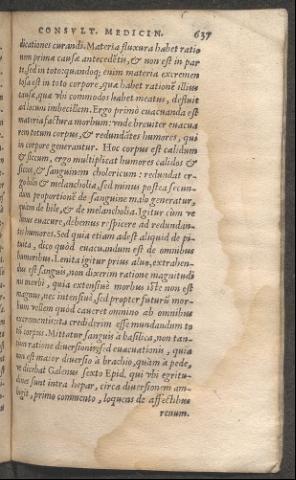 CONSVLT. MEDICIN. 637
dicationes curandi. Materia fluxura habet ratio
nem primæ causæ antecedẽtis, & non est in par
te, sed in toto: quandoq; enim materia excremen
tosa est in toto corpore, quæ habet rationẽ illius
causæ, quæ vbi commodos habet meatus, defluit
ad locum imbecillem. Ergo primò euacuanda est
materia factura morbum: vnde breuiter euacua
rem totum corpus, & redundãtes humores, qui
in corpore generantur. Hoc corpus est calidum
& siccum, ergo multiplicat humores calidos &
siccos, & sanguinem cholericum: redundat er-
go bilis & melancholia, sed minus postea secun-
dum proportionẽ de sanguine malo generatur,
quàm de bile, & de melancholia. Igitur cùm ve
limus euacuare, debemus respicere ad redundan-
tes humores. Sed quia etiam adest aliquid de pi-
tuita, dico quòd euacuandum est de omnibus
humoribus. Lenita igitur prius aluo, extrahen-
dus est sanguis, non dixerim ratione magnitudi
nis morbi, quia extensiuè morbus iste non est
magnus, nec intensiuè, sed propter futurũ mor-
bum vellem quòd caueret omnino ab omnibus
excrementis: ita crediderim esse mundandum to
tũ corpus. Mittatur sanguis à basilica, non tan-
tum ratione diuersionis, sed euacuationis, quia
non est maior diuersio à brachio, quàm à pede,
vt dicebat Galenus sexto Epid. qui vbi egritu-
dines sunt intra hepar, circa diuersionem am-
bigit, primo commento, loquens de affectibus
renum.